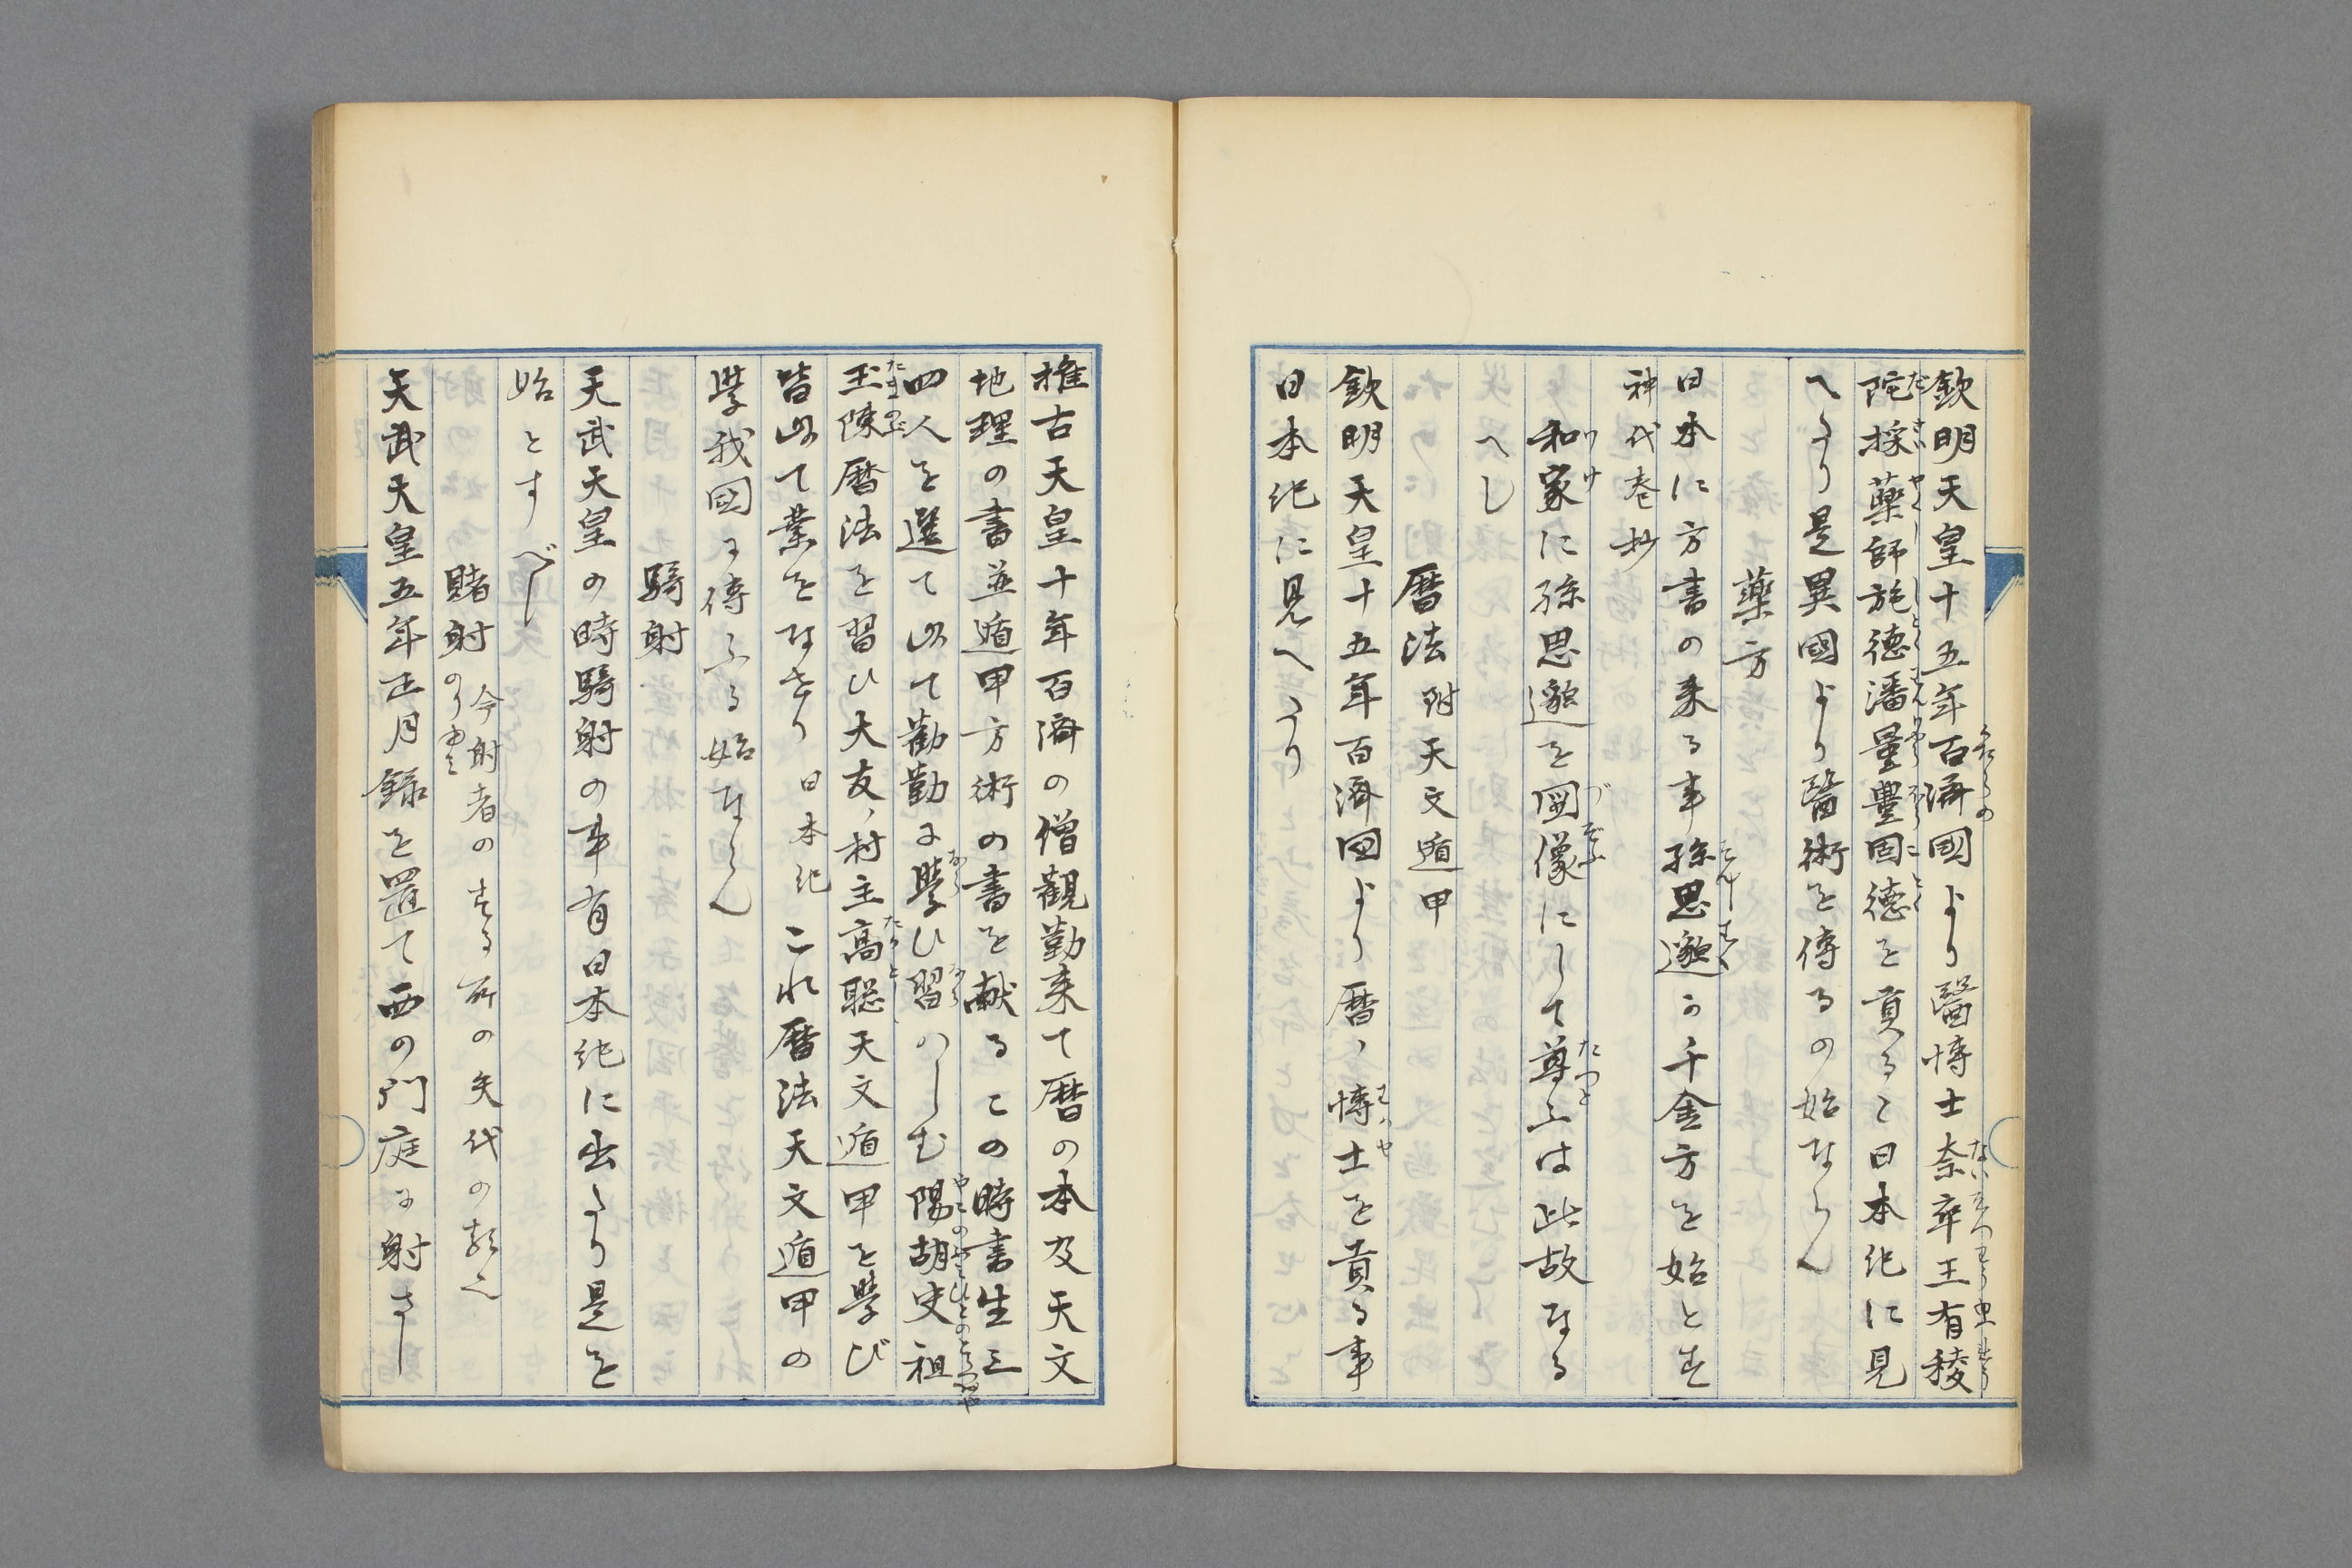 欽明天皇十五年百濟國より醫博士奈率王有稜
陀採藥師施德潘量豊固德を貢ると日本紀に見
へたり是異國より醫術を傳るの始ならん
藥方
日本に方書の来る事孫思邈の千金方を始とす
神代巻抄
和家に孫思邈を圖像にして尊ふは此故なる
へし
暦法 附天文遁甲
欽明天皇十五年百濟国より暦ノ博士を貢る事
日本紀に見へたり
推古天皇十年百濟の僧觀勤来て暦の本及天文
地理の書並遁甲方術の書を献るこの時書生三
四人を選て以て勸勤に學ひ習はしむ陽胡史祖
玉陳暦法を習ひ大友ノ村主高聡天文遁甲を學び
皆以て業をなせり 日本紀 これ暦法天文遁甲の
學我國に傳ふる始ならん
騎射
天武天皇の時騎射の事有日本紀に出たり是を
始とすべし
賭射 のりゆみ 今射者のする所の矢代の類也
天武天皇五年正月録を置て西の門庭に射さし